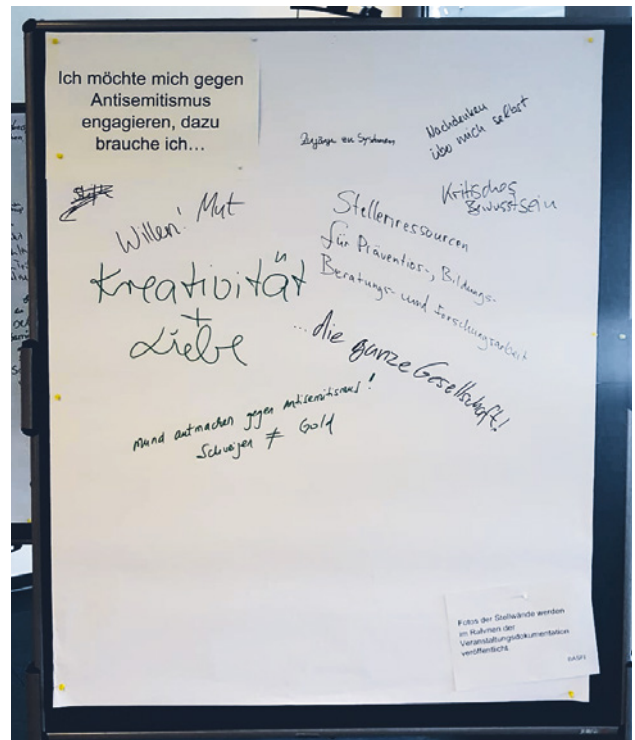 Ich möchte mich gegen
Antisemitismus
engagieren, dazu
brauche ich...
Zugänge zu Systemen
Nachdenken
über mich selbst
Kritisches
Bewusstsein
Willen! Mut
Stellenressourcen
für Präventios-, Bildungs-
Beratungs- und Forschungsarbeit
Kreativität
+
Liebe
...die ganze Gesellschaft!
Mund aufmachen gegen Antisemitismus!
Schweigen ≠ Gold
Fotos der Stellwände werden
im Rahmen der
Veranstaltungsdokumentation
veröffentlicht.